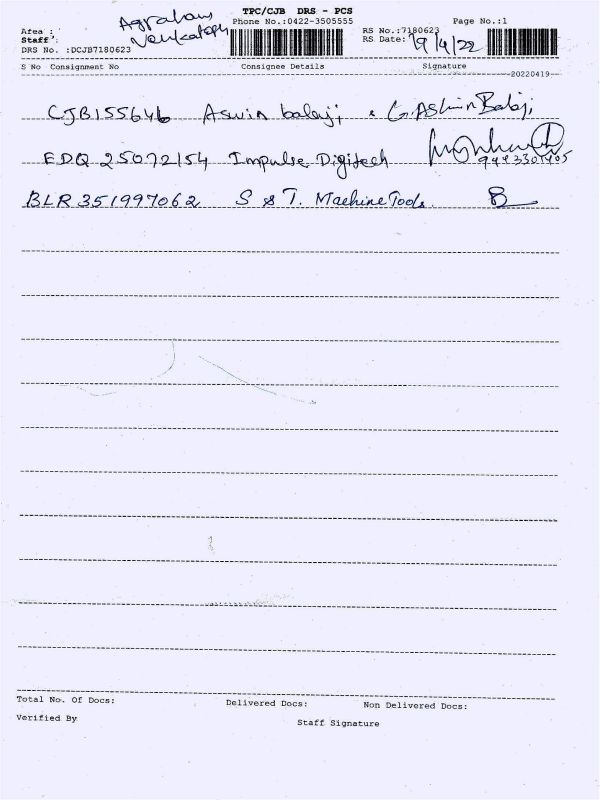 TPC/CJB DRS - PCS
Area : Agraham
Phone No.:0422-3505555
Page No.:1
Staff : Venkatesh
RS No.:7180623
DRS No. :DCJB7180623
RS Date: 19/4/22
S No Consignment No Consignee Details Signature
20220419
CJB155646 Aswin balaji G. AShwin Balaji
EDQ 25072154 Impulse Digitech
BLR 351997062 S & T. Machine Tools. B
Total No. Of Docs: Delivered Docs: Non Delivered Docs:
Verified By
Staff Signature